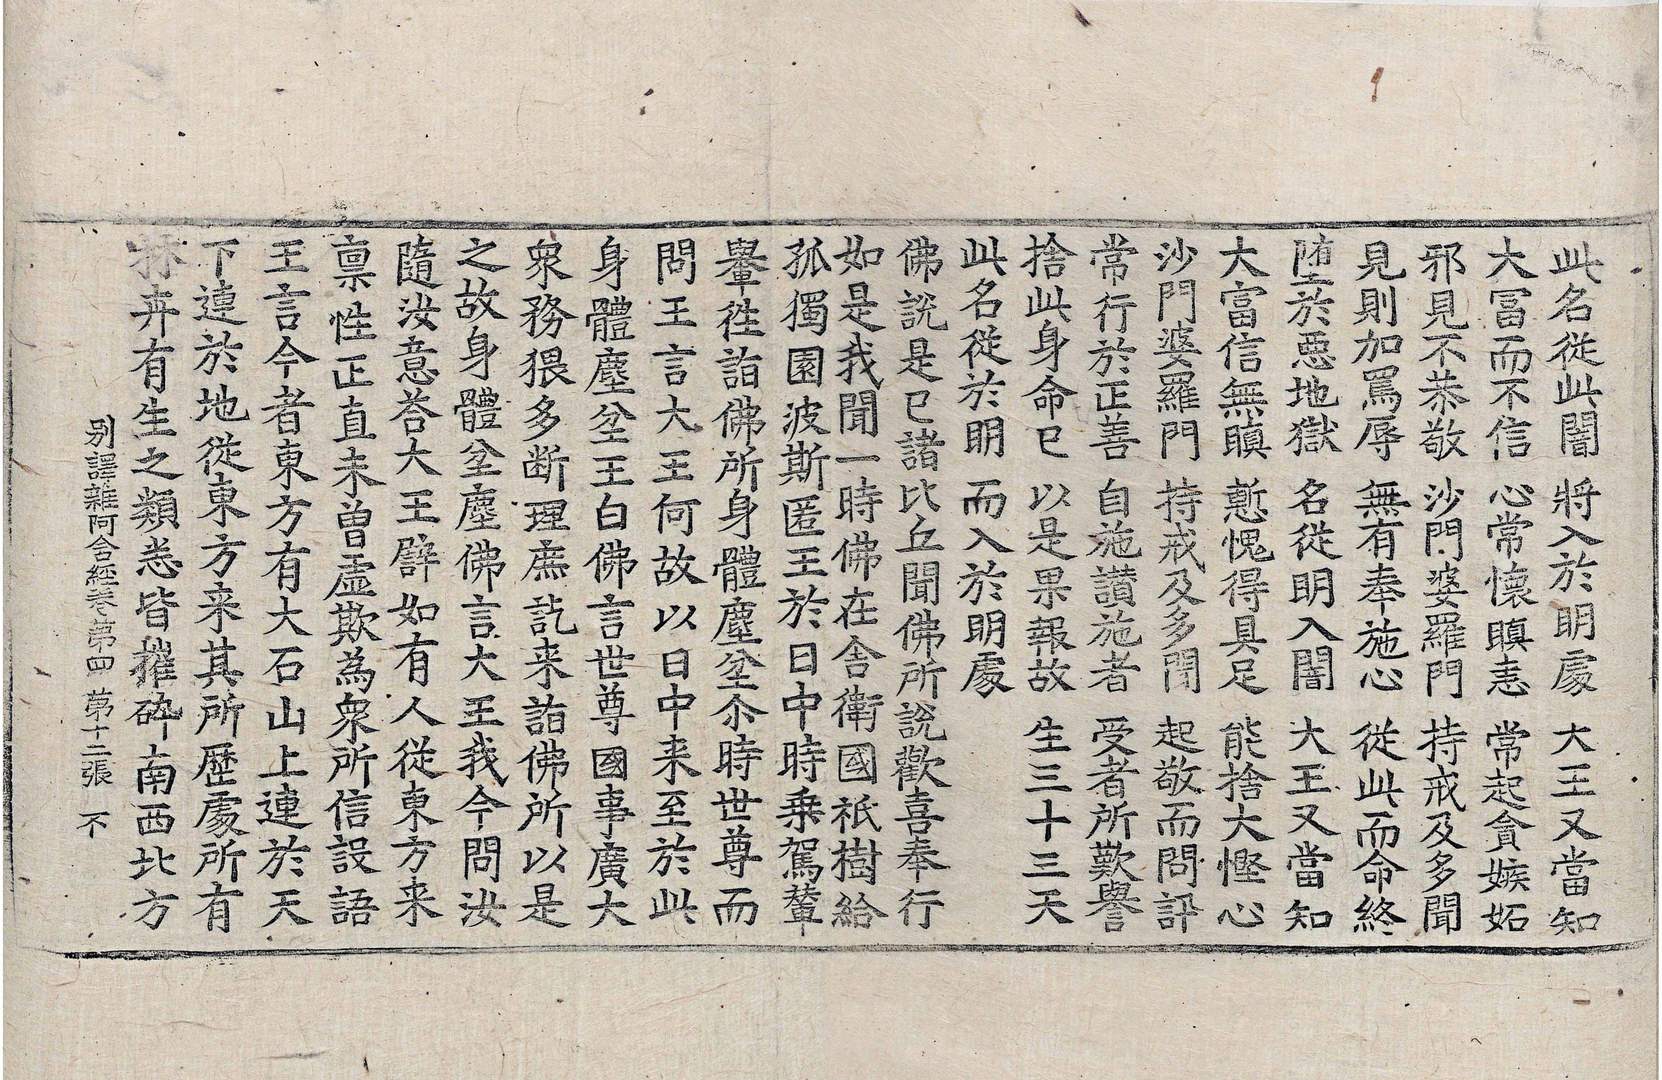 此名從此闇　將入於明處　大王又當知
大冨而不信　心常懷瞋恚　常起貪嫉妬
邪見不恭敬　沙門婆羅門　持戒及多聞
見則加罵辱　無有奉施心　從此而命終
墮於惡地獄　名從明入闇　大王又當知
大富信無瞋　慙愧得具足　能捨大慳心
沙門婆羅門　持戒及多聞　起敬而問訊
常行於正善　自施讚施者　受者所歎譽
捨此身命已　以是果報故　生三十三天
此名從於明　而入於明處
佛說是已諸比丘聞佛所說歡喜奉行
如是我聞一時佛在舍衛國祇樹給
孤獨園波斯匿王於日中時乗駕輦
轝徃詣佛所身體塵坌尒時世尊而
問王言大王何故以日中来至於此
身體塵坌王白佛言世尊國事廣大
衆務猥多断理庶訖来詣佛所以是
之故身體坌塵佛言大王我今問汝
隨汝意荅大王譬如有人從東方来
稟性正直未曽虛欺為衆所信設語
王言今者東方有大石山上連於天
下連於地從東方来其所歷處所有
林卉有生之類悉皆摧碎南西北方
别譯雜阿含経卷第四　第十二張　不